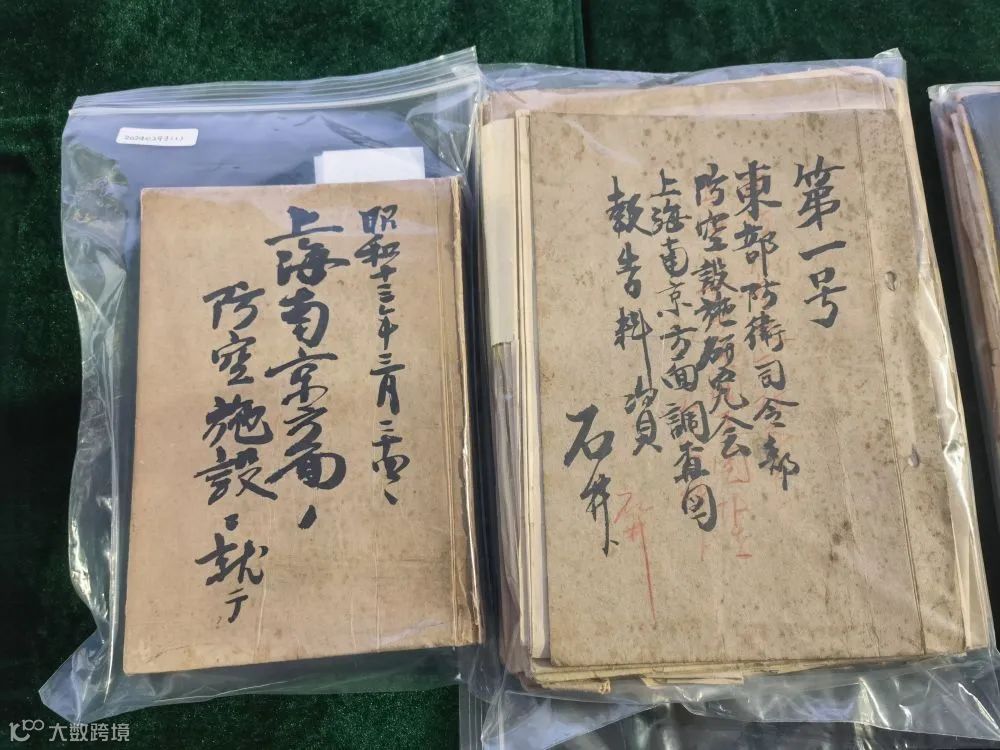 昭和十三年三月
上海南京方面ノ
防空施設ニ就テ
第一号
東部防衛司令部
防空設施研究会
上海南京方面調査団
報告料資
石井
石井
大数跨境